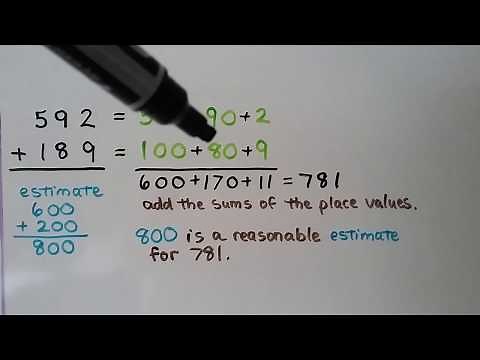 592 = 5 90+2
+ 189 = 100+80+9
600+170+11 = 781
estimate
add the sums of the place values.
600
+ 200
800
800 is a reasonable estimate
for 781.